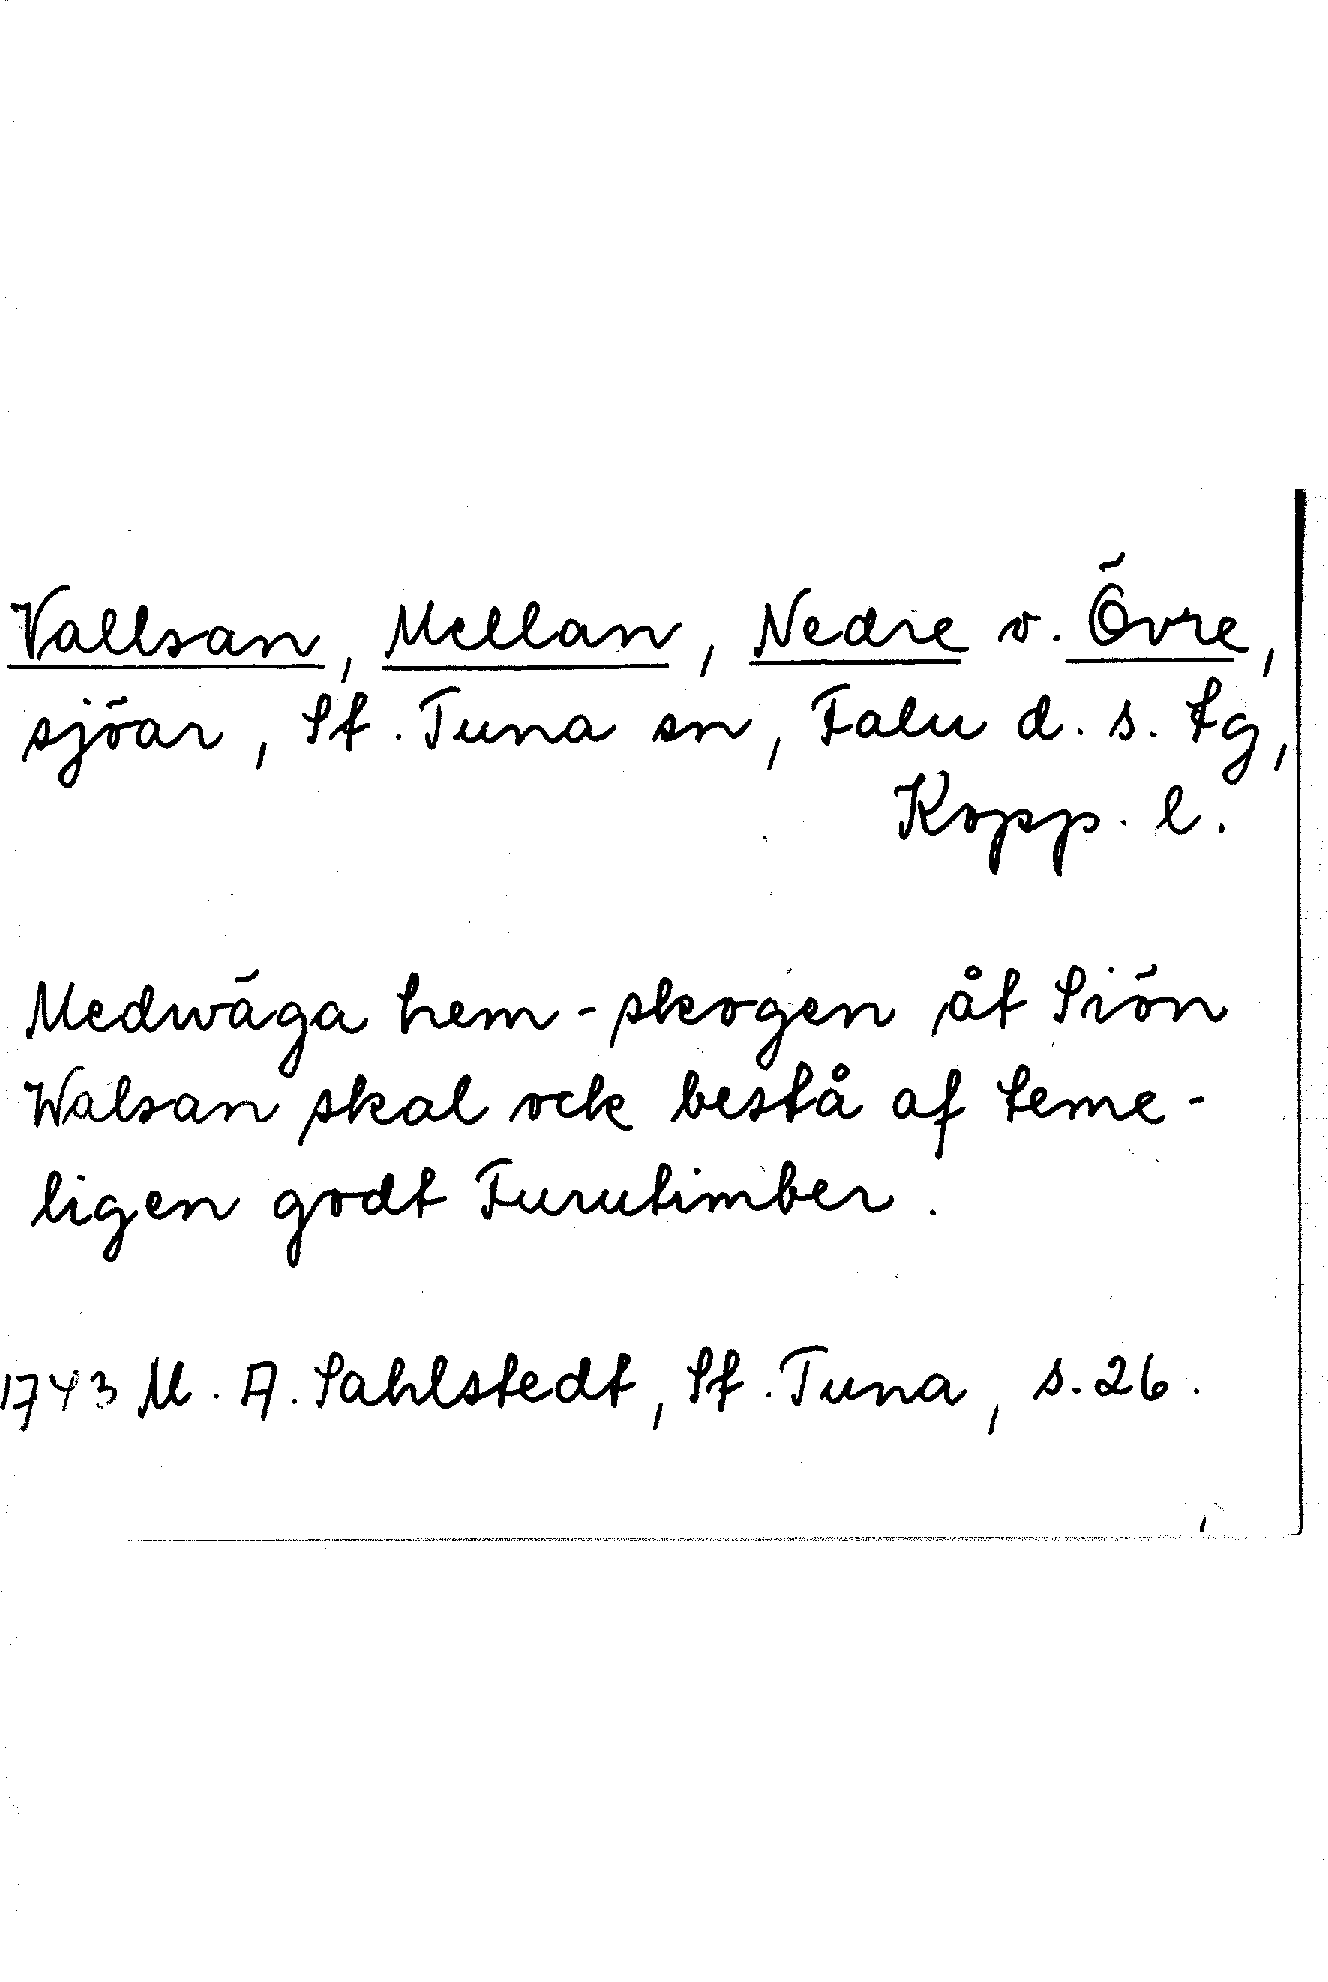 Vallsan, Mellan, Nedre o. Övre,
sjöar, St. Tuna sn, Falu d. s. tg,
Kopp. l.
Medwäga hem-skogen åt Siön
Walsan skal ock bestå af teme-
ligen godt Furutimber.
1743 M. A. Sahlstedt, St. Tuna, s. 26.